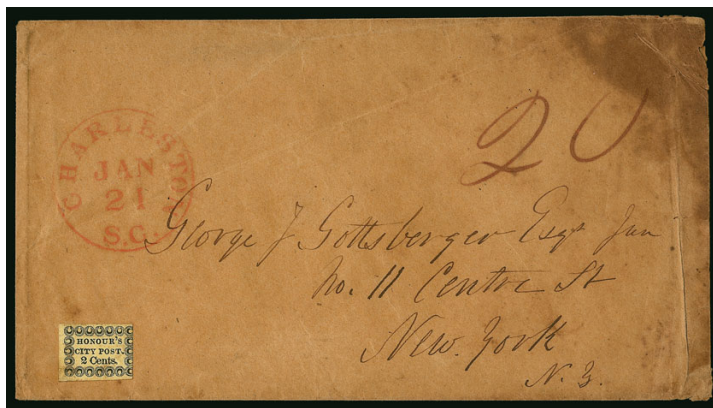 20
CHARLESTON
JAN
21
S.C.
George J Gottsberger Esqr Jun
No. 11 Centre St
New York
N. Y.
HONOUR'S
CITY POST.
2 Cents.